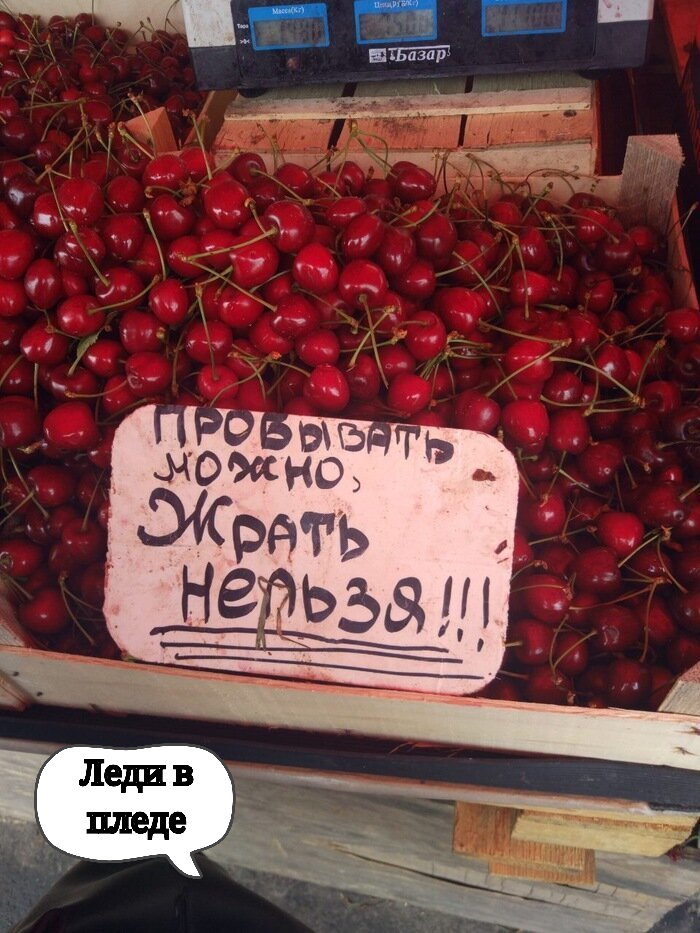 Масса(Кг)
Цена(РУБ/Кг)
Базар
ПРОБЫВАТЬ
МОЖНО,
ЖРАТЬ
НЕЛЬЗЯ!!!
Леди в
пледе